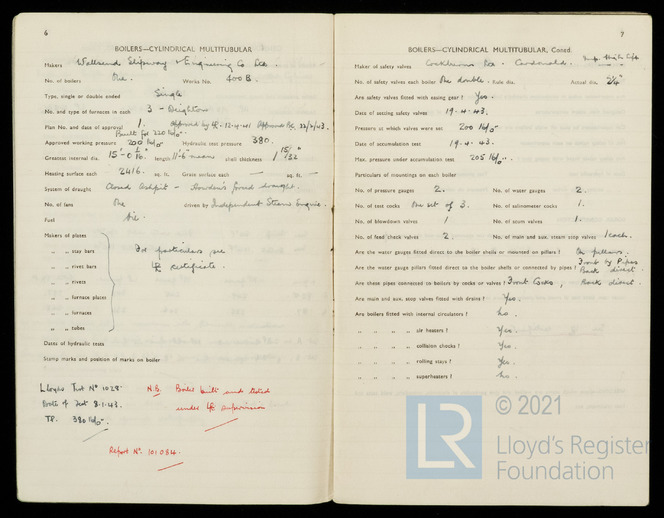 6
BOILERS—CYLINDRICAL MULTITUBULAR
Makers Wallsend Slipway & Engineering Co Ltd.
No. of boilers One. Works No. 400B.
Type, single or double ended Single
No. and type of furnaces in each 3 - Deighton
Plan No. and date of approval 1. Approved by LR - 12-9-41 Approved 22/2/43.
Built for 220 lb/□".
Approved working pressure 200 lb/□" Hydraulic test pressure 380.
Greatest internal dia. 15'-0 length 11'-6" means shell thickness 1 15/32"
Heating surface each 2416. sq. ft. Grate surface each — sq. ft. —
System of draught Closed Ashpit - Howden's forced draught.
No. of fans One driven by Independent Steam Engine.
Fuel Oil.
Makers of plates
„ „ stay bars For particulars see
„ „ rivet bars LR certificate.
„ „ rivets
„ „ furnace plates
„ „ furnaces
„ „ tubes
Dates of hydraulic tests
Stamp marks and position of marks on boiler
Lloyds Test No 1028
Date of Test 8.1.43.
TP. 380 lb/□".
N.B. Boiler built and tested
under LR supervision
Report No. 101084.
7
BOILERS—CYLINDRICAL MULTITUBULAR, Contd.
Maker of safety valves Cockburns Ltd. - Cardonald. Imp. High Lift
No. of safety valves each boiler One double. Rule dia. Actual dia. 2¼"
Are safety valves fitted with easing gear? Yes.
Date of setting safety valves 19.4.43.
Pressure at which valves were set 200 lb/□"
Date of accumulation test 19.4.43.
Max. pressure under accumulation test 205 lb/□".
Particulars of mountings on each boiler
No. of pressure gauges 2. No. of water gauges 2.
No. of test cocks One set of 3. No. of salinometer cocks 1.
No. of blowdown valves 1 No. of scum valves 1.
No. of feed check valves 2. No. of main and aux. steam stop valves 1 each.
Are the water gauges fitted direct to the boiler shells or mounted on pillars? On pillars.
Are the water gauge pillars fitted direct to the boiler shells or connected by pipes? Front by Pipes Back direct.
Are these pipes connected to boilers by cocks or valves? Front Cocks, Back direct.
Are main and aux. stop valves fitted with drains? Yes.
Are boilers fitted with internal circulators? No.
„ „ „ „ air heaters? Yes.
„ „ „ „ collision chocks? Yes.
„ „ „ „ rolling stays? Yes.
„ „ „ „ superheaters? No.
LR
© 2021
Lloyd's Register
Foundation